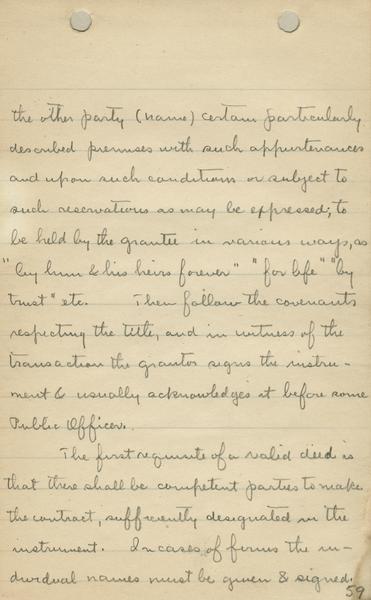 the other party (name) certain particularly
described premises with such appurtenances
and upon such conditions or subject to
such reservations as may be expressed; to
be held by the grantee in various ways, as
"by him & his heirs forever" "for life" "by
trust" etc. Then follow the covenants
respecting the title, and in witness of the
transaction the grantor signs the instru-
ment & usually acknowledges it before some
Public Officer.
The first requisite of a valid deed is
that there shall be competent parties to make
the contract, sufficiently designated in the
instrument. In cases of firms the in-
dividual names must be given & signed.
59